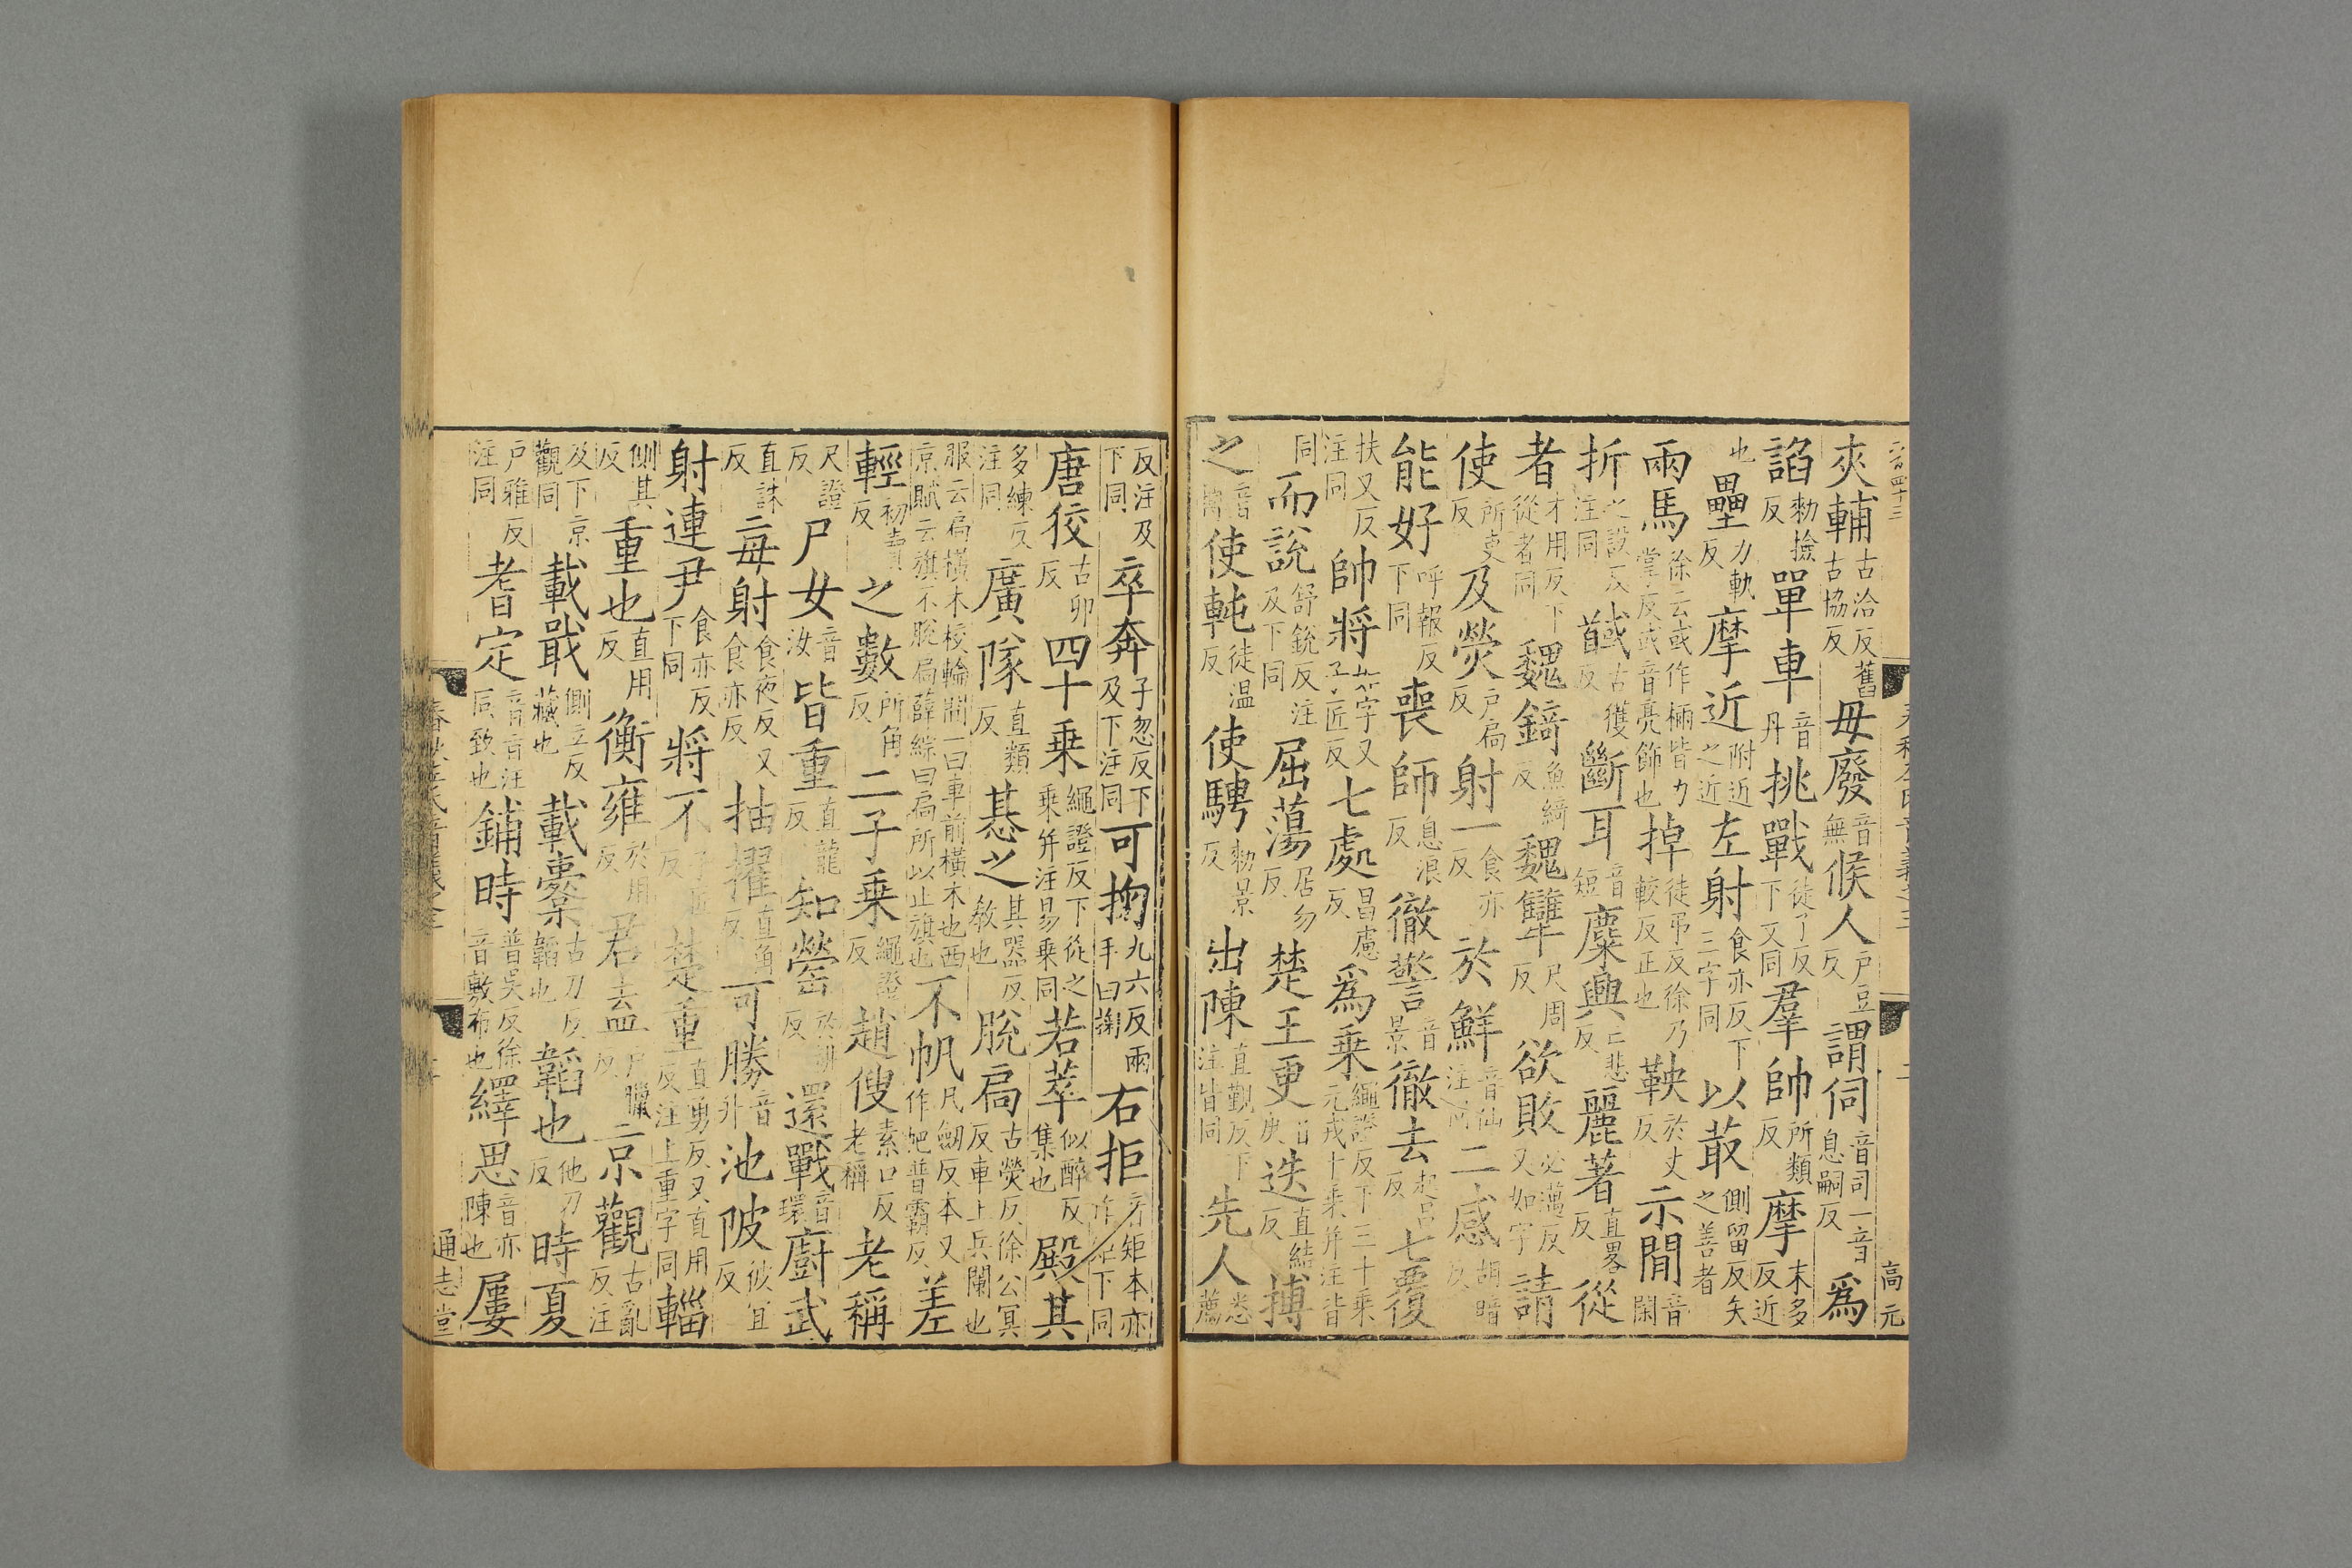 夾輔古洽反舊古協反毋廢音無候人戶豆反謂伺音司一音息嗣反爲
諂勑撿反單車音丹挑戰徒了反下文同羣帥所類反摩末多反近
也壘力軌反摩近附近之近左射食亦反下三字同以菆側留反矢之善者
兩馬徐云或作㭃皆力掌反或音亮飾也掉徒弔反徐乃較反正也鞅於丈反示閒音閑
折之設反注同馘古獲反斷耳音短麋興亡悲反麗著直畧反從
者才用反下從者同魏錡魚綺反魏犨尺周反欲敗必邁反又如字請
使所吏反及熒戶扃反射一食亦反於鮮音仙注同二感胡暗反
能好呼報反下同喪師息浪反徹警音景徹去起呂反七覆
扶又反注同帥將如字又子匠反七處昌慮反爲乘繩證反下三十乘元戎十乘并注皆
同而說舒銳反注及下同屈蕩居勿反楚王更音庚迭直結反搏
之音博使軘徒温反使騁勑景反出陳直覲反下注皆同先人悉薦
反注及下同卒奔子忽反下及下注同可掬九六反兩手曰掬右拒音矩本亦作矩下同
唐狡古卯反四十乗繩證反下從之乗并注易乗同若萃似醉反集也殿其
多練反注同廣隊直類反惎之其器反教也脫扃古熒反徐公冥反車上兵闌也
服云扃橫木校輪閒一曰車前橫木也西京賦云旗不脫扃薛綜曰扃所以止旗也不帆凡劒反本又作帊普霸反差
輕初賣反之數所角反二子乗繩證反趙傁素口反老稱老稱
尺證反尸女音汝皆重直龍反知罃於耕反還戰音環廚武
直誅反每射食夜反又食亦反抽擢直角反可勝音升池陂彼宜反
射連尹食亦反下同將不楚重直勇反又直用反注上重字同輜
側其反重也直用反衡雍於用反君盍戶臘反京觀古亂反注
及下京觀同載戢側立反藏也載櫜古刀反韜也韜也他刀反時夏
戶雅反注同耆定音旨注同致也鋪時普吳反徐音敷布也繹思音亦陳也屢
高元
通志堂